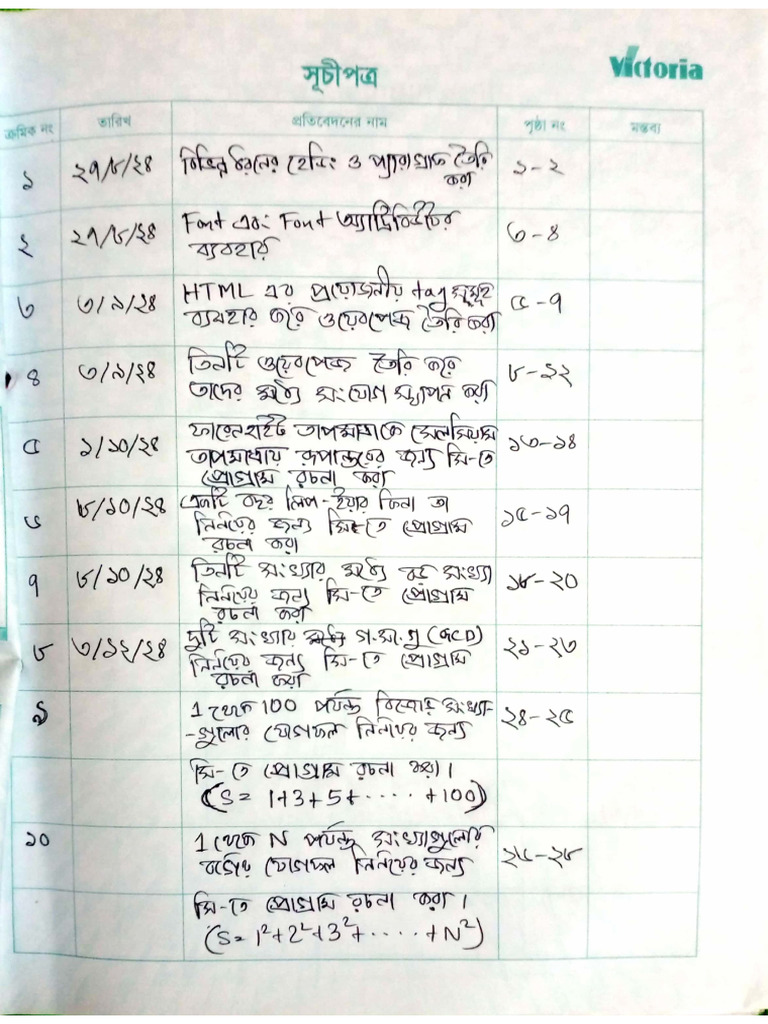 সূচীপত্র
Victoria
ক্রমিক নং তারিখ প্রতিবেদনের নাম পৃষ্ঠা নং মন্তব্য
১ ২৭/৮/২৪ বিভিন্ন ধরনের হেডিং ও প্যারাগ্রাফ তৈরি ১-২
করা
২ ২৭/৮/২৪ Font এবং Font অ্যাট্রিবিউটের ৩-৪
ব্যবহার
৩ ৩/৯/২৪ HTML এর প্রয়োজনীয় tag সমূহ ৫-৭
ব্যবহার করে ওয়েবপেজ তৈরি করা
৪ ৩/৯/২৪ তিনটি ওয়েবপেজ তৈরি করে ৮-১২
তাদের মধ্যে সংযোগ স্থাপন করা
৫ ১/১০/২৪ ফারেনহাইট তাপমাত্রাকে সেলসিয়াস ১৩-১৪
তাপমাত্রায় রূপান্তরের জন্য সি-তে
প্রোগ্রাম রচনা করা
৬ ৮/১০/২৪ একটি বছর লিপ-ইয়ার কিনা তা ১৫-১৭
নির্ণয়ের জন্য সি-তে প্রোগ্রাম
রচনা করা
৭ ৮/১০/২৪ তিনটি সংখ্যার মধ্যে বড় সংখ্যা ১৮-২০
নির্ণয়ের জন্য সি-তে প্রোগ্রাম
রচনা করা
৮ ৩/১২/২৪ দুটি সংখ্যার গ.সা.গু (GCD) ২১-২৩
নির্ণয়ের জন্য সি-তে প্রোগ্রাম
রচনা করা
৯ 1 থেকে 100 পর্যন্ত বিজোড় সংখ্যা- ২৪-২৫
-গুলোর যোগফল নির্ণয়ের জন্য
সি-তে প্রোগ্রাম রচনা করা।
(S = 1+3+5+ ..... +100)
১০ 1 থেকে N পর্যন্ত সংখ্যাগুলোর ২৬-২৮
বর্গের যোগফল নির্ণয়ের জন্য
সি-তে প্রোগ্রাম রচনা করা।
(S = 1²+2²+3²+ ..... +N²)